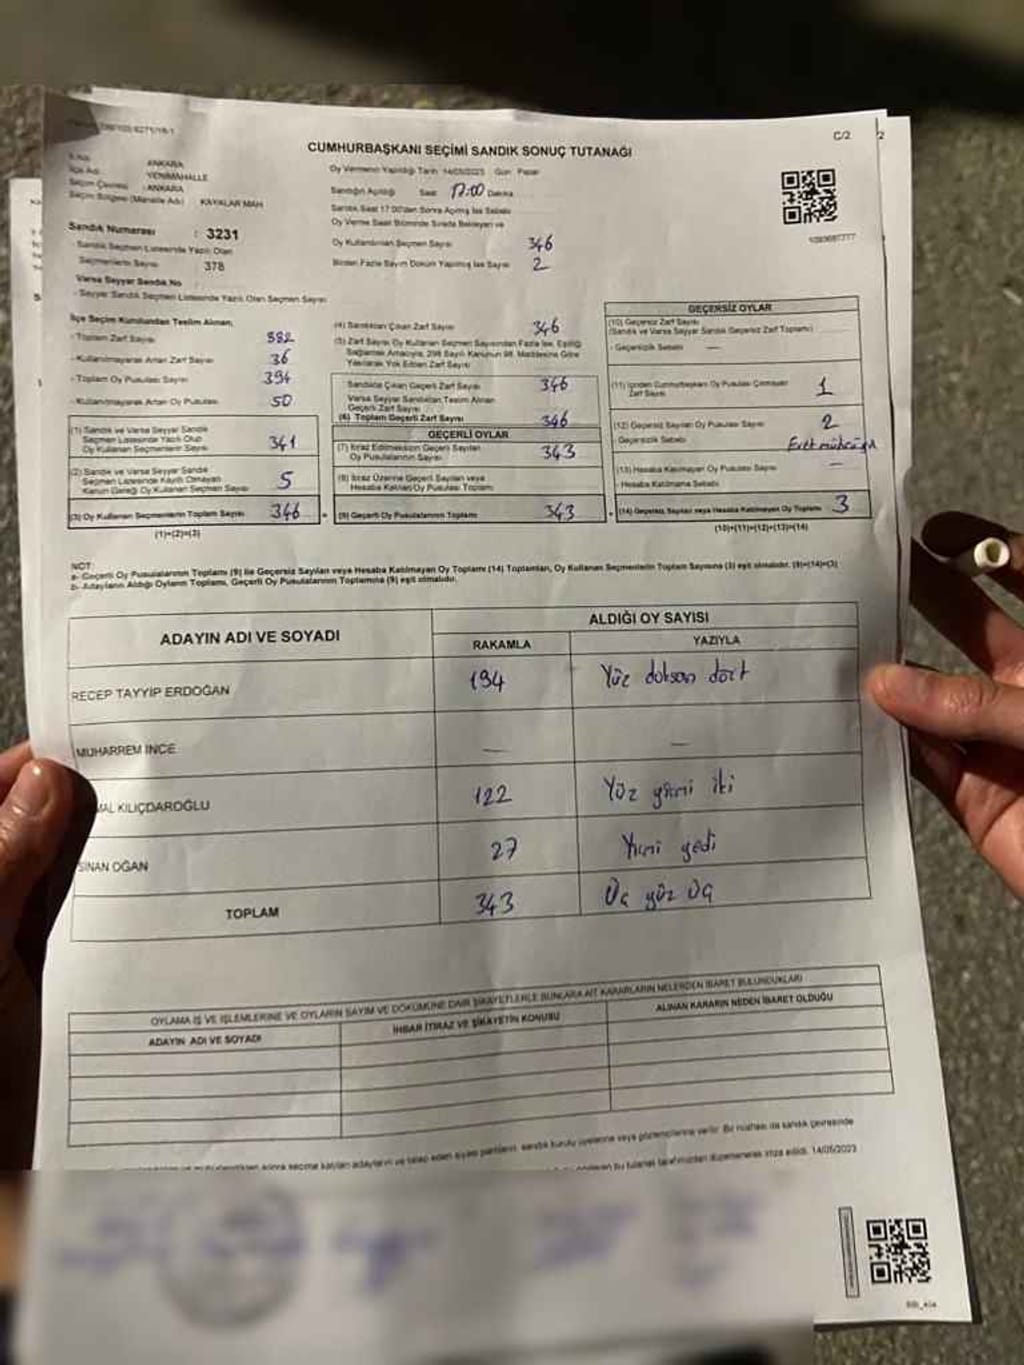 C/2
2
CUMHURBAŞKANI SEÇİMİ SANDIK SONUÇ TUTANAĞI
İl Adı ANKARA
İlçe Adı YENİMAHALLE
Seçim Çevresi : ANKARA
Seçim Bölgesi (Mahalle Adı) KAYALAR MAH
Sandık Numarası : 3231
- Sandık Seçmen Listesinde Yazılı Olan
Seçmenlerin Sayısı 378
Varsa Seyyar Sandık No
- Seyyar Sandık Seçmen Listesinde Yazılı Olan Seçmen Sayısı
Oy Vermenin Yapıldığı Tarih 14/05/2023 Gün Pazar
Sandığın Açıldığı Saat 17:00 Dakika
Sandık Saat 17.00'den Sonra Açılmış İse Sebebi
Oy Verme Saati Bitiminde Sırada Bekleyen ve
Oy Kullandırılan Seçmen Sayısı 346
Birden Fazla Sayım Döküm Yapılmış İse Sayısı 2
İlçe Seçim Kurulundan Teslim Alınan;
- Toplam Zarf Sayısı 382
- Kullanılmayarak Artan Zarf Sayısı 36
- Toplam Oy Pusulası Sayısı 394
- Kullanılmayarak Artan Oy Pusulası 50
(1) Sandık ve Varsa Seyyar Sandık
Seçmen Listesinde Yazılı Olup
Oy Kullanan Seçmenlerin Sayısı 341
(2) Sandık ve Varsa Seyyar Sandık
Seçmen Listesinde Kayıtlı Olmayan
Kanun Gereği Oy Kullanan Seçmen Sayısı 5
(3) Oy Kullanan Seçmenlerin Toplam Sayısı 346
(1)+(2)=(3)
(4) Sandıktan Çıkan Zarf Sayısı 346
(5) Zarf Sayısı Oy Kullanan Seçmen Sayısından Fazla İse, Eşitliği
Sağlamak Amacıyla, 298 Sayılı Kanunun 98. Maddesine Göre
Yakılarak Yok Edilen Zarf Sayısı
Sandıkta Çıkan Geçerli Zarf Sayısı 346
Varsa Seyyar Sandıktan Teslim Alınan
Geçerli Zarf Sayısı
(6) Toplam Geçerli Zarf Sayısı 346
GEÇERLİ OYLAR
(7) İtiraz Edilmeksizin Geçerli Sayılan
Oy Pusulalarının Sayısı 343
(8) İtiraz Üzerine Geçerli Sayılan veya
Hesaba Katılan Oy Pusulası Toplamı
(9) Geçerli Oy Pusulalarının Toplamı 343
GEÇERSİZ OYLAR
(10) Geçersiz Zarf Sayısı
(Sandık ve Varsa Seyyar Sandık Geçersiz Zarf Toplamı)
- Geçersizlik Sebebi —
(11) İçinden Cumhurbaşkanı Oy Pusulası Çıkmayan
Zarf Sayısı 1
(12) Geçersiz Sayılan Oy Pusulası Sayısı 2
- Geçersizlik Sebebi Evet mührü
(13) Hesaba Katılmayan Oy Pusulası Sayısı —
- Hesaba Katılmama Sebebi
(14) Geçersiz Sayılan veya Hesaba Katılmayan Oy Toplamı 3
(10)+(11)+(12)+(13)=(14)
NOT:
a- Geçerli Oy Pusulalarının Toplamı (9) ile Geçersiz Sayılan veya Hesaba Katılmayan Oy Toplamı (14) Toplamları, Oy Kullanan Seçmenlerin Toplam Sayısına (3) eşit olmalıdır. (9)+(14)=(3)
b- Adayların Aldığı Oyların Toplamı, Geçerli Oy Pusulalarının Toplamına (9) eşit olmalıdır.
ADAYIN ADI VE SOYADI
ALDIĞI OY SAYISI
RAKAMLA YAZIYLA
RECEP TAYYİP ERDOĞAN 194 Yüz doksan dört
MUHARREM İNCE — —
MAL KILIÇDAROĞLU 122 Yüz yirmi iki
SİNAN OĞAN 27 Yirmi yedi
TOPLAM 343 Üç yüz üç
OYLAMA İŞ VE İŞLEMLERİNE VE OYLARIN SAYIM VE DÖKÜMÜNE DAİR ŞİKAYETLERLE BUNLARA AİT KARARLARIN NELERDEN İBARET BULUNDUKLARI
ADAYIN ADI VE SOYADI İHBAR İTİRAZ VE ŞİKAYETİN KONUSU ALINAN KARARIN NEDEN İBARET OLDUĞU
seçime katılan adayların ve talep eden siyasi partilerin, sandık kurulu üyelerine veya gözlemcilerine verilir. Bir nüshası da sandık çevresinde
bu tutanak tarafımızdan düzenlenerek imza edildi. 14/05/2023